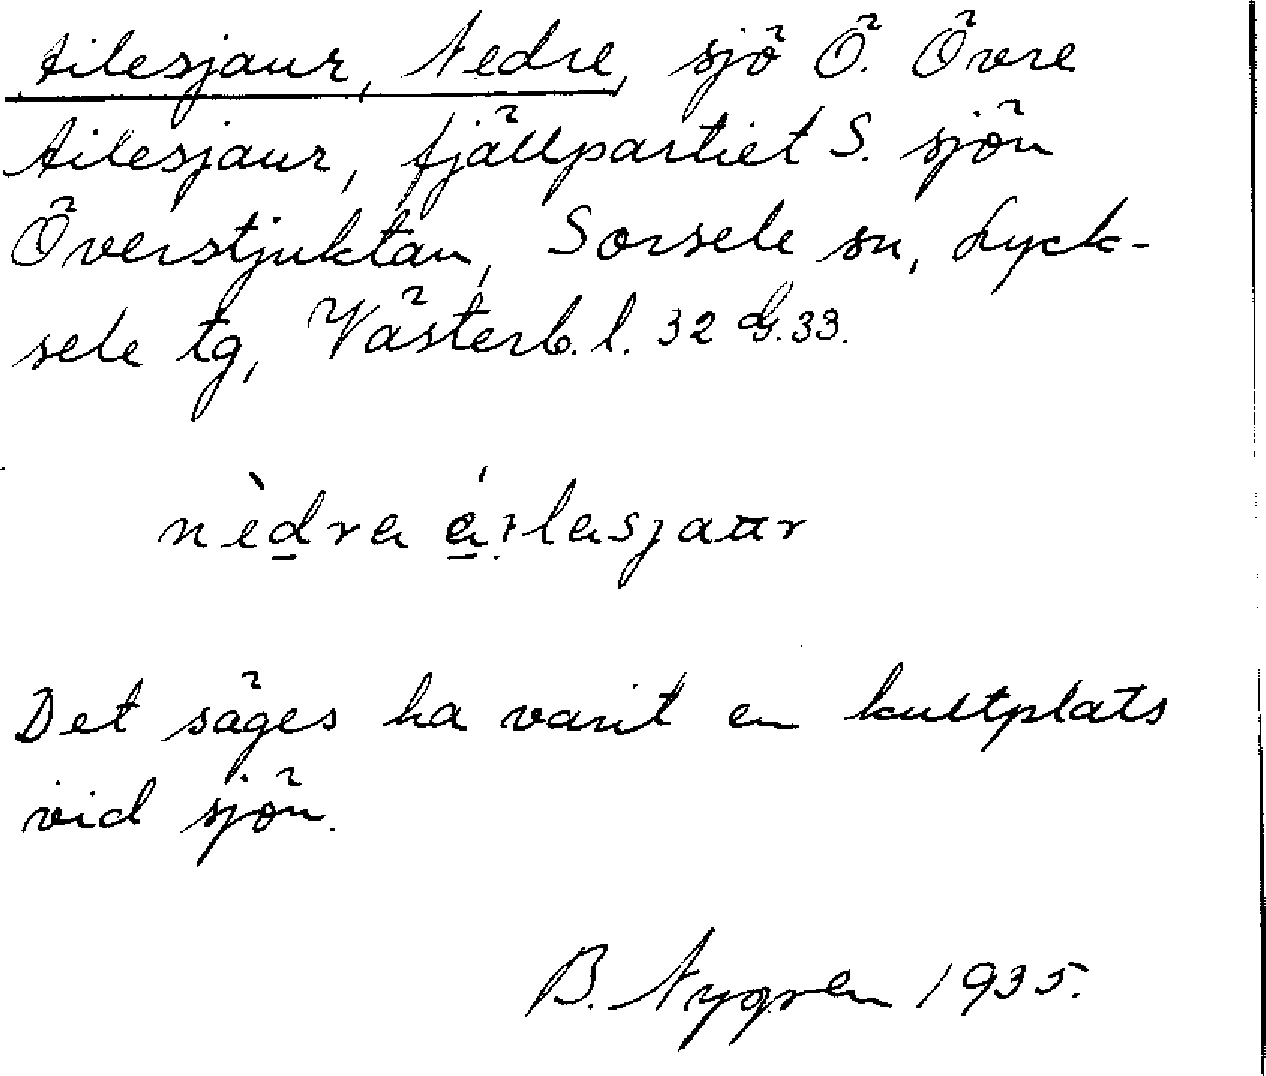 Ailesjaur, Nedre, sjö Ö. Övre
Ailesjaur, fjällpartiet S. sjön
Överstjuktan, Sorsele sn, Lyck-
sele tg, Västerb. l. 32 G. 33.
nèdra á:ilasjaur
Det säges ha varit en kultplats
vid sjön.
B. Nygren 1935.